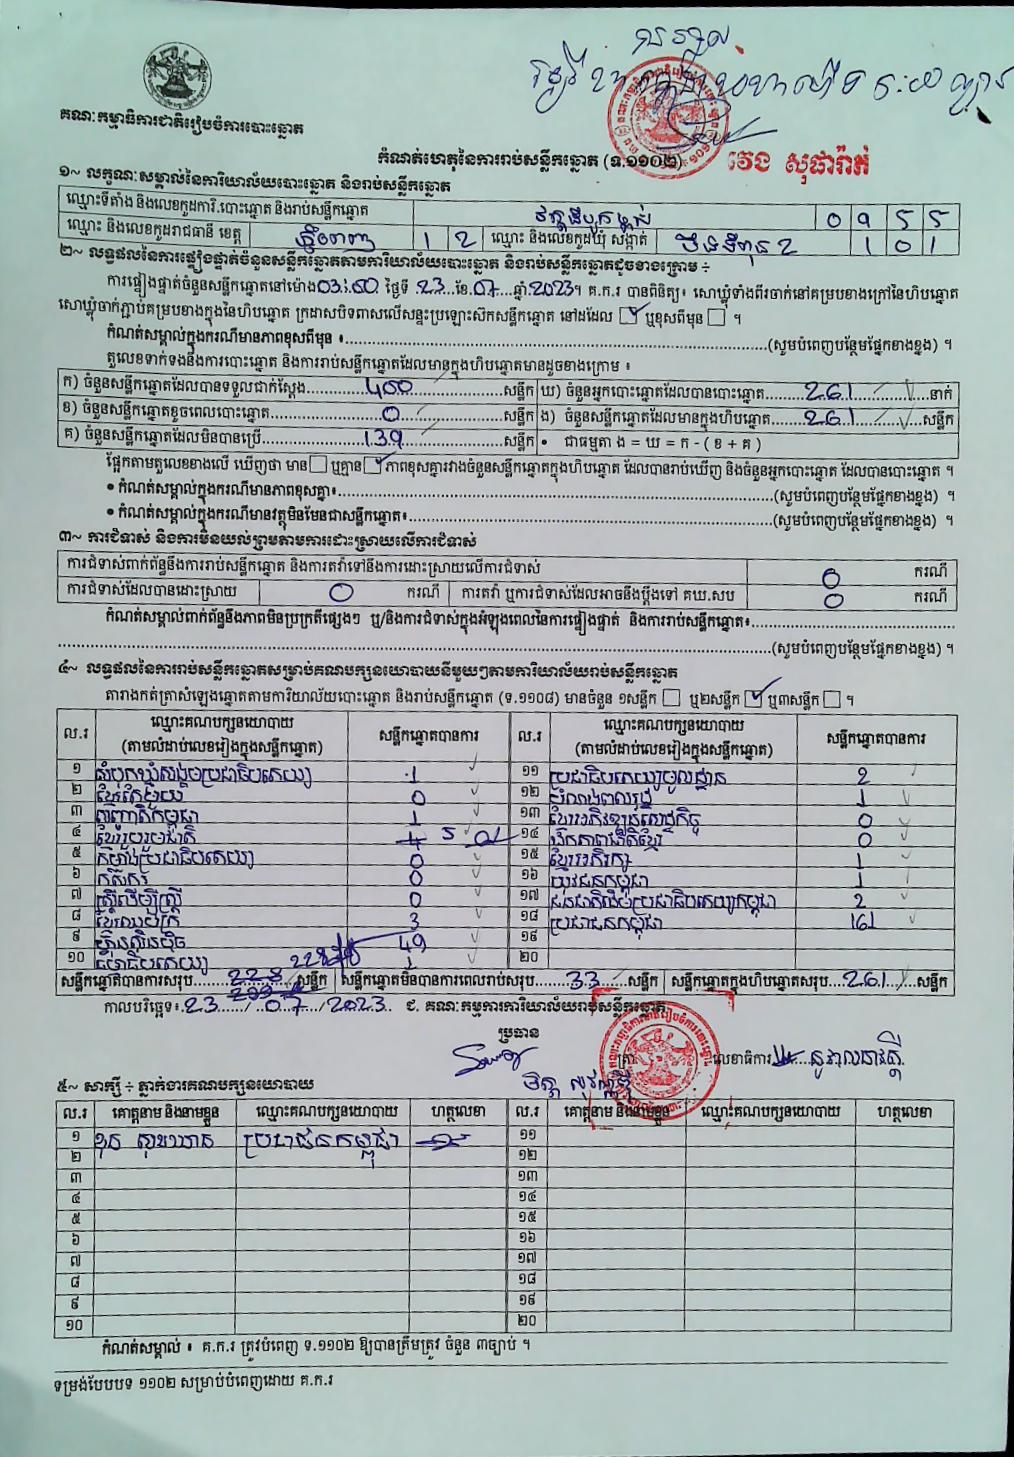 គណៈកម្មាធិការជាតិរៀបចំការបោះឆ្នោត
កំណត់ហេតុនៃការរាប់សន្លឹកឆ្នោត (ទ.១១០២)
វេង សុផារ៉ាត់
១~ លក្ខណៈសម្គាល់នៃការិយាល័យបោះឆ្នោត និងរាប់សន្លឹកឆ្នោត
ឈ្មោះទីតាំង និងលេខកូដការិ.បោះឆ្នោត និងរាប់សន្លឹកឆ្នោត 0 9 5 5
ឈ្មោះ និងលេខកូដរាជធានី ខេត្ត ភ្នំពេញ 1 2 ឈ្មោះ និងលេខកូដឃុំ សង្កាត់ 1 0 1
២~ លទ្ធផលនៃការផ្ទៀងផ្ទាត់ចំនួនសន្លឹកឆ្នោតតាមការិយាល័យបោះឆ្នោត និងរាប់សន្លឹកឆ្នោតដូចខាងក្រោម ÷
ការផ្ទៀងផ្ទាត់ចំនួនសន្លឹកឆ្នោតនៅម៉ោង 03:00 ថ្ងៃទី 23 ខែ 07 ឆ្នាំ 2023។ គ.ក.រ បានពិនិត្យ៖ សោឃ្លុំទាំងពីរចាក់នៅគម្របខាងក្រៅនៃហិបឆ្នោត
សោឃ្លុំចាក់ភ្ជាប់គម្របខាងក្នុងនៃហិបឆ្នោត ក្រដាសបិទពាសលើសន្ទះប្រឡោះសិកសន្លឹកឆ្នោត នៅដដែល ☑ ឬខុសពីមុន ☐ ។
កំណត់សម្គាល់ក្នុងករណីមានភាពខុសពីមុន ៖ (សូមបំពេញបន្ថែមផ្នែកខាងខ្នង) ។
តួលេខទាក់ទងនឹងការបោះឆ្នោត និងការរាប់សន្លឹកឆ្នោតដែលមានក្នុងហិបឆ្នោតមានដូចខាងក្រោម ៖
ក) ចំនួនសន្លឹកឆ្នោតដែលបានទទួលជាក់ស្តែង 400 សន្លឹក ឃ) ចំនួនអ្នកបោះឆ្នោតដែលបានបោះឆ្នោត 261 នាក់
ខ) ចំនួនសន្លឹកឆ្នោតខូចពេលបោះឆ្នោត 0 សន្លឹក ង) ចំនួនសន្លឹកឆ្នោតដែលមានក្នុងហិបឆ្នោត 261 សន្លឹក
គ) ចំនួនសន្លឹកឆ្នោតដែលមិនបានប្រើ 139 សន្លឹក • ជាធម្មតា ង = ឃ = ក - ( ខ + គ )
ផ្អែកតាមតួលេខខាងលើ ឃើញថា មាន ☐ ឬគ្មាន ☑ ភាពខុសគ្នារវាងចំនួនសន្លឹកឆ្នោតក្នុងហិបឆ្នោត ដែលបានរាប់ឃើញ និងចំនួនអ្នកបោះឆ្នោត ដែលបានបោះឆ្នោត ។
• កំណត់សម្គាល់ក្នុងករណីមានភាពខុសគ្នា៖ (សូមបំពេញបន្ថែមផ្នែកខាងខ្នង) ។
• កំណត់សម្គាល់ក្នុងករណីមានវត្ថុមិនមែនជាសន្លឹកឆ្នោត៖ (សូមបំពេញបន្ថែមផ្នែកខាងខ្នង) ។
៣~ ការជំទាស់ និងការមិនយល់ព្រមតាមការដោះស្រាយលើការជំទាស់
ការជំទាស់ពាក់ព័ន្ធនឹងការរាប់សន្លឹកឆ្នោត និងការតវ៉ាទៅនឹងការដោះស្រាយលើការជំទាស់ 0 ករណី
ការជំទាស់ដែលបានដោះស្រាយ 0 ករណី ការតវ៉ា ឬការជំទាស់ដែលអាចនឹងប្តឹងទៅ គឃ.សប 0 ករណី
កំណត់សម្គាល់ពាក់ព័ន្ធនឹងភាពមិនប្រក្រតីផ្សេងៗ ឬ/និងការជំទាស់ក្នុងអំឡុងពេលនៃការផ្ទៀងផ្ទាត់ និងការរាប់សន្លឹកឆ្នោត៖
(សូមបំពេញបន្ថែមផ្នែកខាងខ្នង) ។
៤~ លទ្ធផលនៃការរាប់សន្លឹកឆ្នោតសម្រាប់គណបក្សនយោបាយនីមួយៗតាមការិយាល័យរាប់សន្លឹកឆ្នោត
តារាងកត់ត្រាសំឡេងឆ្នោតតាមការិយាល័យបោះឆ្នោត និងរាប់សន្លឹកឆ្នោត (ទ.១១០៨) មានចំនួន ១សន្លឹក ☐ ឬ២សន្លឹក ☑ ឬ៣សន្លឹក ☐ ។
ល.រ ឈ្មោះគណបក្សនយោបាយ (តាមលំដាប់លេខរៀងក្នុងសន្លឹកឆ្នោត) សន្លឹកឆ្នោតបានការ ល.រ ឈ្មោះគណបក្សនយោបាយ (តាមលំដាប់លេខរៀងក្នុងសន្លឹកឆ្នោត) សន្លឹកឆ្នោតបានការ
១ សំបុកឃ្មុំសង្គមប្រជាធិបតេយ្យ 1 ១១ ប្រជាធិបតេយ្យមូលដ្ឋាន 2
២ ខ្មែរតែមួយ 0 ១២ 1
៣ បញ្ញាតិកម្ពុជា 1 ១៣ ខ្មែរអភិវឌ្ឍន៍សេដ្ឋកិច្ច 0
៤ ខ្មែររួបរួមជាតិ 4 5 ១៤ ឯកភាពជាតិខ្មែរ 0
៥ កម្លាំងប្រជាធិបតេយ្យ 0 ១៥ ខ្មែរអភិរក្ស 1
៦ កសិករ 0 ១៦ យុវជនកម្ពុជា 1
៧ ស្ត្រីដើម្បីស្ត្រី 0 ១៧ ជនជាតិដើមប្រជាធិបតេយ្យកម្ពុជា 2
៨ ខ្មែរឈប់ក្រ 3 ១៨ ប្រជាជនកម្ពុជា 161
៩ ហ៊្វុនស៊ិនប៉ិច 49 ១៩
១០ ធម្មាធិបតេយ្យ 1 ២០
សន្លឹកឆ្នោតបានការសរុប 228 សន្លឹក សន្លឹកឆ្នោតមិនបានការពេលរាប់សរុប 33 សន្លឹក សន្លឹកឆ្នោតក្នុងហិបឆ្នោតសរុប 261 សន្លឹក
កាលបរិច្ឆេទ៖ 23 / 07 / 2023 ជ. គណៈកម្មការការិយាល័យរាប់សន្លឹកឆ្នោត
ប្រធាន ត្រា លេខាធិការ
៥~ សាក្សី ÷ ភ្នាក់ងារគណបក្សនយោបាយ
ល.រ គោត្តនាម និងនាមខ្លួន ឈ្មោះគណបក្សនយោបាយ ហត្ថលេខា ល.រ គោត្តនាម និងនាមខ្លួន ឈ្មោះគណបក្សនយោបាយ ហត្ថលេខា
១ ប្រជាជនកម្ពុជា ១១
២ ១២
៣ ១៣
៤ ១៤
៥ ១៥
៦ ១៦
៧ ១៧
៨ ១៨
៩ ១៩
១០ ២០
កំណត់សម្គាល់ ៖ គ.ក.រ ត្រូវបំពេញ ទ.១១០២ ឱ្យបានត្រឹមត្រូវ ចំនួន ៣ច្បាប់ ។
ទម្រង់បែបបទ ១១០២ សម្រាប់បំពេញដោយ គ.ក.រ